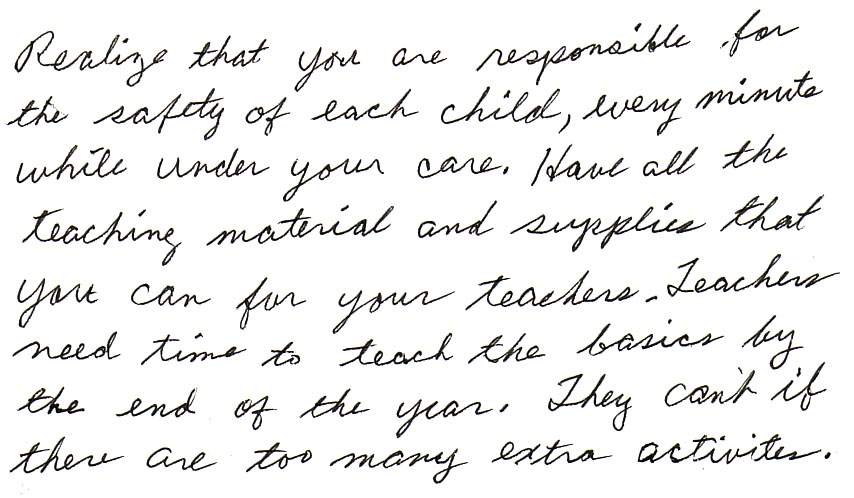 Realize that you are responsible for
the safety of each child, every minute
while under your care. Have all the
teaching material and supplies that
you can for your teachers. Teachers
need time to teach the basics by
the end of the year. They can't if
there are too many extra activites.